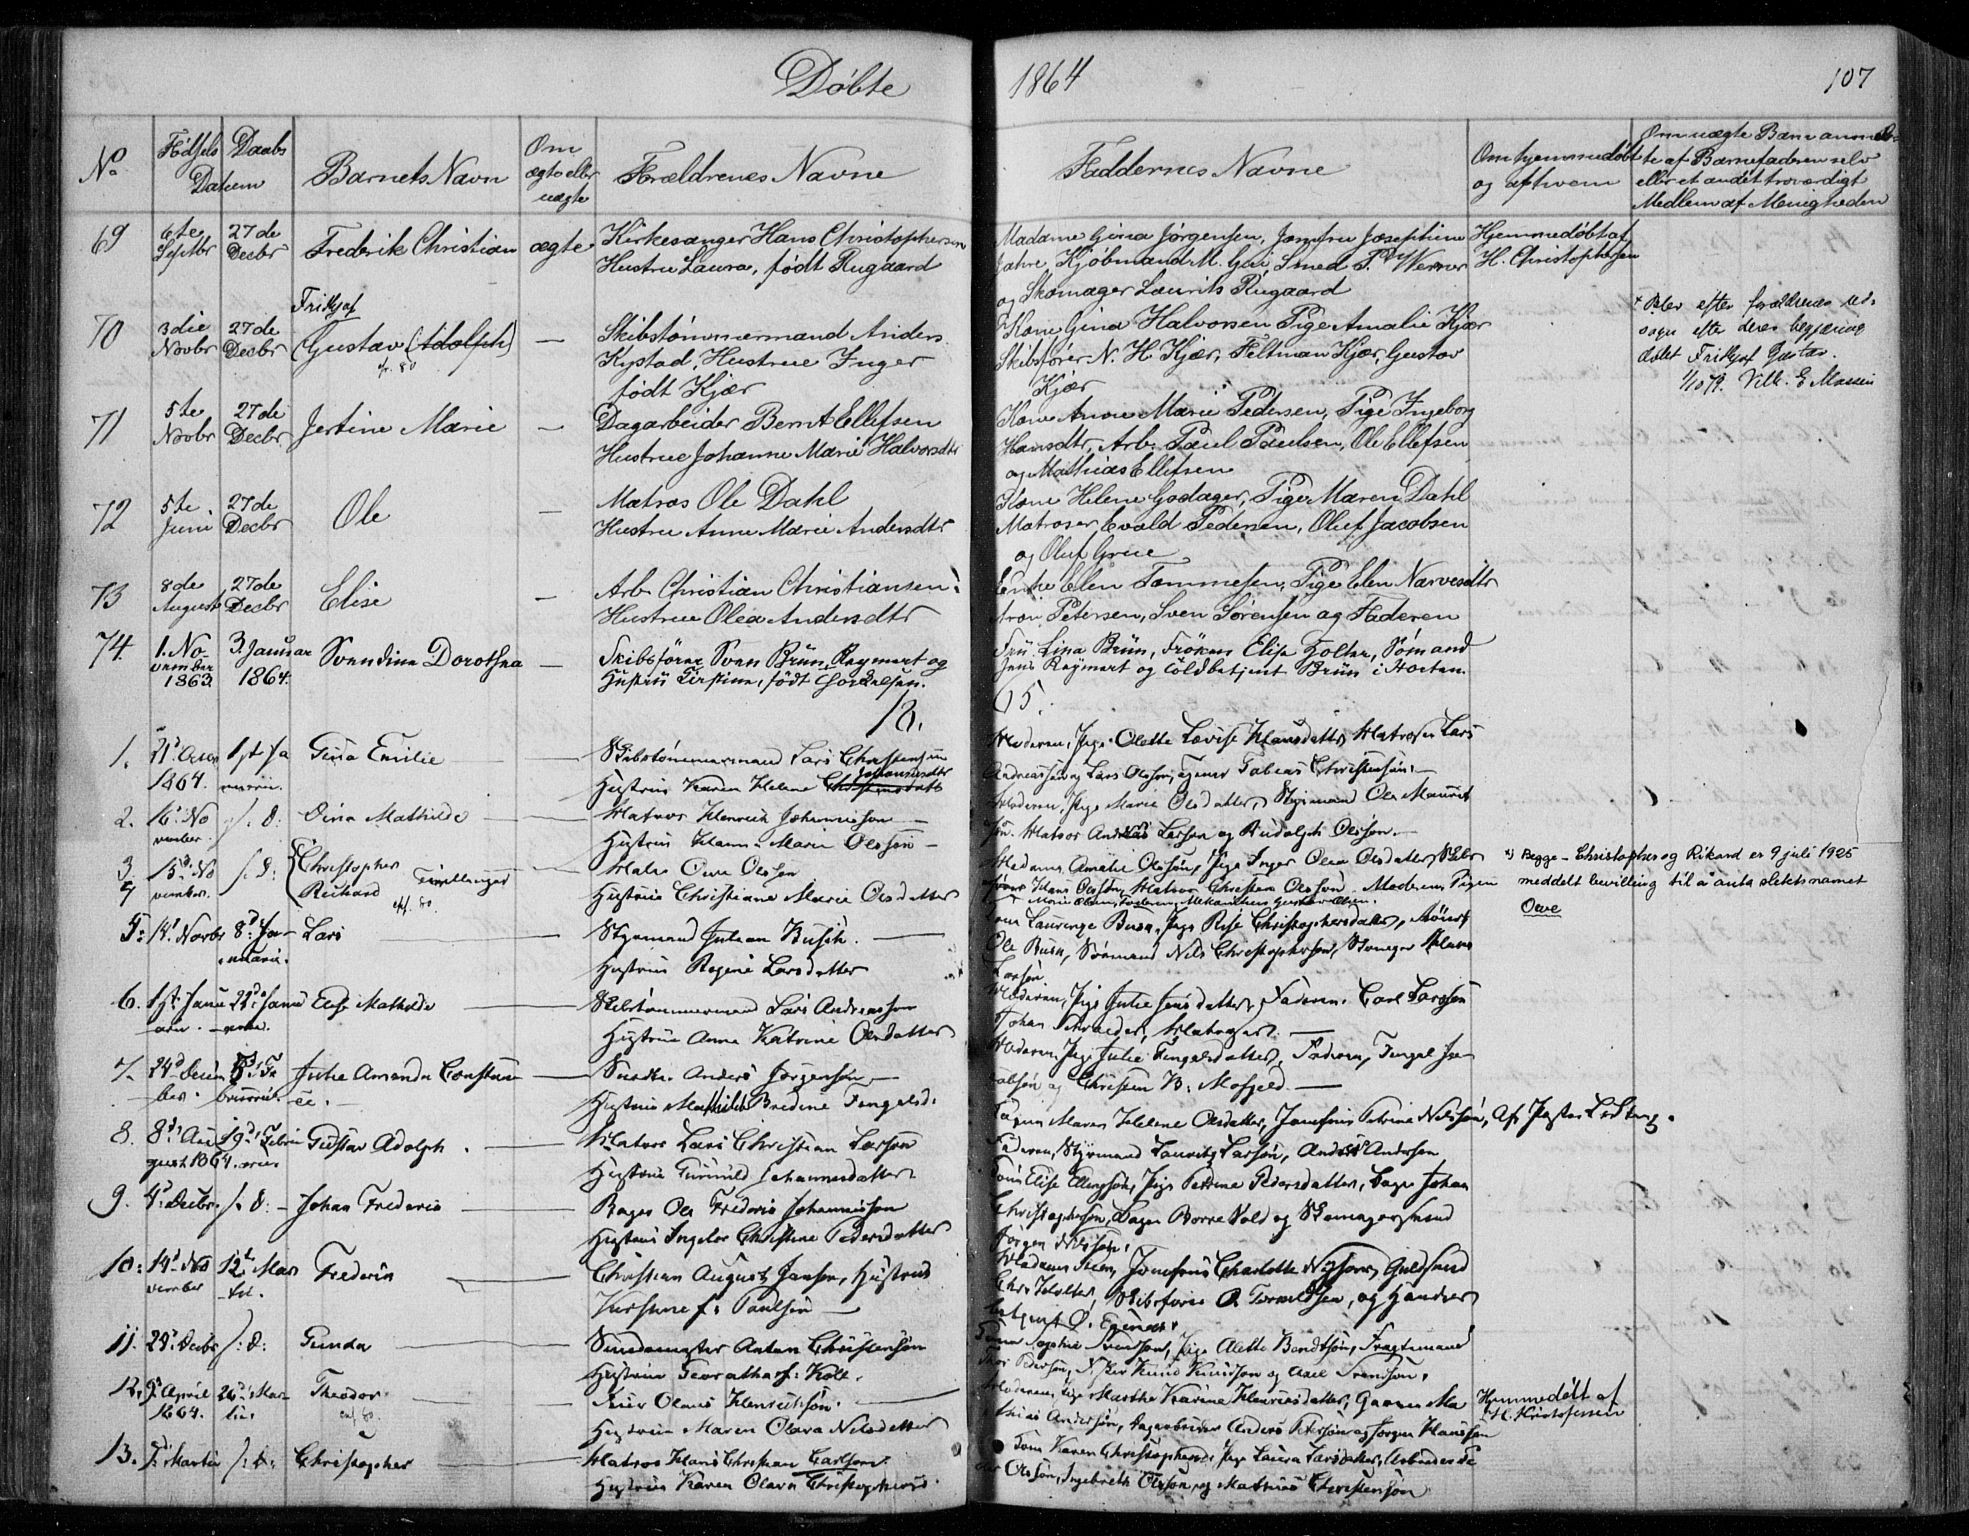 Døbte
1864
107
No
Fødsels
Daabs
Datum
Barnets Navn
Om
ægte eller
uægte
Forældrenes Navne
Faddernes Navne
Om hjemmedøbt
og af hvem
Om uægte Børn anmeld-
te af Barnefaderen selv
eller et andet troværdigt
Medlem af Menigheden
69
6te
Septbr
27de
Decbr
Frederik Christian
ægte
Kirkesanger Hans Christophersen
Hustrue Laura, født Rugaard
Madame Gina Jørgensen, Jomfru Josephine
Jahre, Kjøbmand M. Gui, Smed P. Werner
og Skomager Laurits Rugaard
Hjemmedøbt af
H. Christophersen
70
3die
Novbr
27de
Decbr
Fridtjof
Gustav (Adolph)
cfr. 80
—
Skibstømmermand Anders
Kystad, Hustrue Inger
født Kjær
Kone Gina Halvorsen Pige Amalie Kjær
Skibsfører N. H. Kjær, Feltman Kjær, Gustav
Kjær
* Blev efter forældrenes ud-
sagn efter deres begjæring
døbt Fridtjof Gustav.
1/10 79. Vilh. E. Massen
71
5te
Novbr
27de
Decbr
Jertine Marie
—
Dagarbeider Bernt Ellefsen
Hustrue Johanne Marie Halvorsdtr
Kone Anne Marie Pedersen, Pige Ingeborg
Hansdtr, Arb. Paul Paulsen, Ole Ellefsen
og Mathias Ellefsen
72
5te
Juni
27de
Decbr
Ole
—
Matros Ole Dahl
Hustrue Anne Marie Andersdtr
Kone Helene Godager, Pige Maren Dahl
Matroser, Evald Pedersen, Oluf Jacobsen
og Oluf Grue
73
8de
August
27de
Decbr
Elise
—
Arb. Christian Christiansen
Hustrue Olea Andersdtr
Enke Elen Tommesen, Pige Elen Narvesdtr
Aron Petersen, Sven Sørensen og Faderen
74.
1. No-
vember
1863
3. Januar
1864.
Svendine Dorothea
—
Skibsfører Sven Brün Reymert og
Hustru Kirstine, født
Lina Brün, Frøken Elise Holter, Sømand
Jens Reymert og Toldbetjent Brün i Horten.
18.
65.
1.
1864.
Gina Emilie
Skibstømmermand Lars Christensen
Hustrue Karen Helene Johannesdtr
Moderen, Pige Olette Lovise Hansdatter, Matroser Lars
Andreassen og Lars Olsson, Tobias Christensen.
2.
16. No
vember
Dina Mathilde
Matros Henrich Johannesson
Hustrue Hanna Marie Olsson
Moderen, Pige Marie Olsdatter, Styrmand Ole Maurit
søn. Matros Andreas Larson og Rudolph Olsson.
3.
4
15. No
vember.
Christopher
Rickard
Tvillinger
cfr. 80.
Maler Owe Olson
Hustrue Christiane Marie Olsdatter
Madame Amalie Olsson, Pige Inger Olea Olsdatter, Skibs
fører Hans Olsson, Matros Christian Olsson. Moderen, Pigen
*) Begge – Christopher og Rikard er 9 juli 1925
meddelt bevilling til å anta slektsnamet
Owe
5.
14. Novbr
8. Ja-
nuarii.
Lars
Styrmand Julian Busch.
Hustrue Regine Larsdatter
Laurenze Busch, Pige Risse Christophersdatter,
Ole Busch, Sømand Nils Christophersen, Skomager
Larsøn
6.
1st. Janu
arii.
22. Janu
Else Mathilde
Skibstømmermand Lars Andreasson
Hustrue Anne Katrine Olsdatter
Moderen, Pige Julie Jensdatter, Faderen. Carl Larssen
Johan Schrøder, Matroser.
7.
24. Decem
ber.
5. Fe
bruarii.
Julie Amanda Constan-
ce.
Snedker Anders Jørgensøn
Hustrue Mathilde Bredine Tengelsd.
Moderen, Pige Julie Tengelsdatter, Faderen, Tengel Ja-
cobsøn og Christen B. Mofjeld.
8.
8. Au
gust 1864.
19. Febru
Gustav Adolph
Matros Lars Christian Larsson
Hustrue Gunnild Johannesdatter
Maren Helene Olsdatter, Jomfrue Petrine Nilsson,
Faderen, Styrmand Lauritz Larsøn, Andreas Anderson
9.
4. Decbr.
Johan Frederic
Bager Ole Frederic Johannesson
Hustrue Ingeborg Christine Pedersdatter
Elise Ellingson, Pige Petrine Pedersdatter, Bager Johan
Christopherson, Bager Borre Vold og Skomagersvend
Jørgen Nilsson.
10.
14. No
vember
12. Mar
tii.
Frederik
Christian August Janson, Hustrue
Kirstine f. Paulsøn
Madame Steen, Jomfrue Charlotte Nilsson, Guldsmed
Chr. Holter, Skibsfører O. Tormodsen, og Handels
betjent O. Egenæs.
11.
24. Decbr
Gunda
Smedemester Anton Christensøn
Hustrue Georatha f. Kold.
Sophie Svendson, Pige Alette Berndtsøn, Fragtemand
Thor Pedersøn, Knud Knudson og Axel Svendson.
12.
9. April
1864.
26. Mar
tii.
Theodor
cfr. 80.
Olaus Henrikson.
Hustrue Maren Olava Nilsdatter
Moderen, Pige Marthe Karine Henriksdatter, Garver Ma
thias Anderson, Dagarbeider Anders Peterson og Jørgen Hansson
Hjemmedøbt af
H. Kristofersen
13.
5. Martii
Christopher
Matros Hans Christian Carlson
Hustrue Karen Olava Christophersd.
Karen Christophersen, Pige Laura Larsdatter, Arbeider Pe
der Olsson, Ingebreth Olsson, og Mathias Christensøn